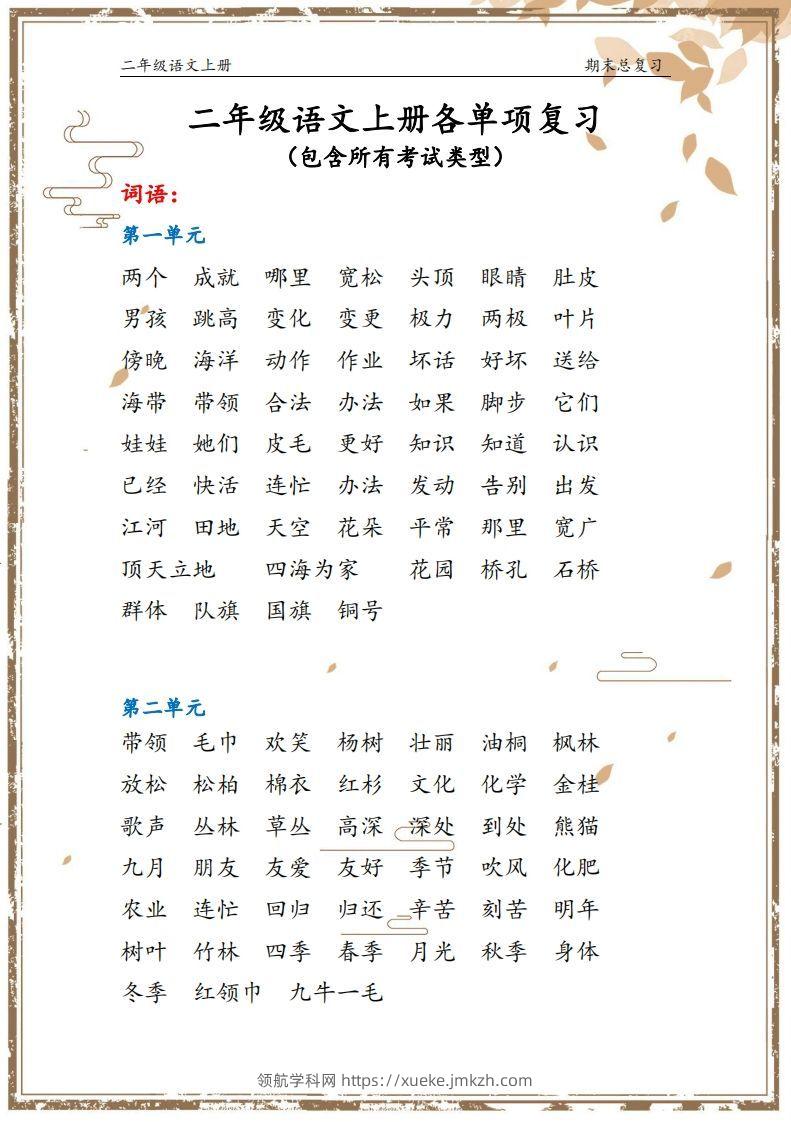 二年级语文上册 期末总复习
二年级语文上册各单项复习
（包含所有考试类型）
词语：
第一单元
两个 成就 哪里 宽松 头顶 眼睛 肚皮
男孩 跳高 变化 变更 极力 两极 叶片
傍晚 海洋 动作 作业 坏话 好坏 送给
海带 带领 合法 办法 如果 脚步 它们
娃娃 她们 皮毛 更好 知识 知道 认识
已经 快活 连忙 办法 发动 告别 出发
江河 田地 天空 花朵 平常 那里 宽广
顶天立地 四海为家 花园 桥孔 石桥
群体 队旗 国旗 铜号
第二单元
带领 毛巾 欢笑 杨树 壮丽 油桐 枫林
放松 松柏 棉衣 红杉 文化 化学 金桂
歌声 丛林 草丛 高深 深处 到处 熊猫
九月 朋友 友爱 友好 季节 吹风 化肥
农业 连忙 回归 归还 辛苦 刻苦 明年
树叶 竹林 四季 春季 月光 秋季 身体
冬季 红领巾 九牛一毛
领航学科网 https://xueke.jmkzh.com